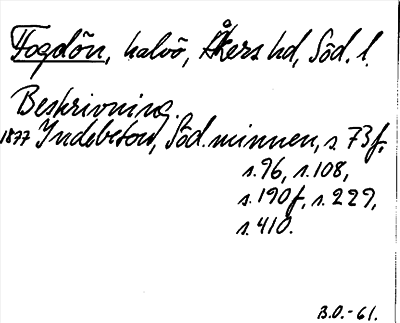 Fogdön, halvö, Åkers hd, Söd. l.
Beskrivning.
1877 Indebetou, Söd. minnen, s 73 f,
s. 96, s. 108,
s. 190 f, s. 229,
s. 410.
B.O.-61.